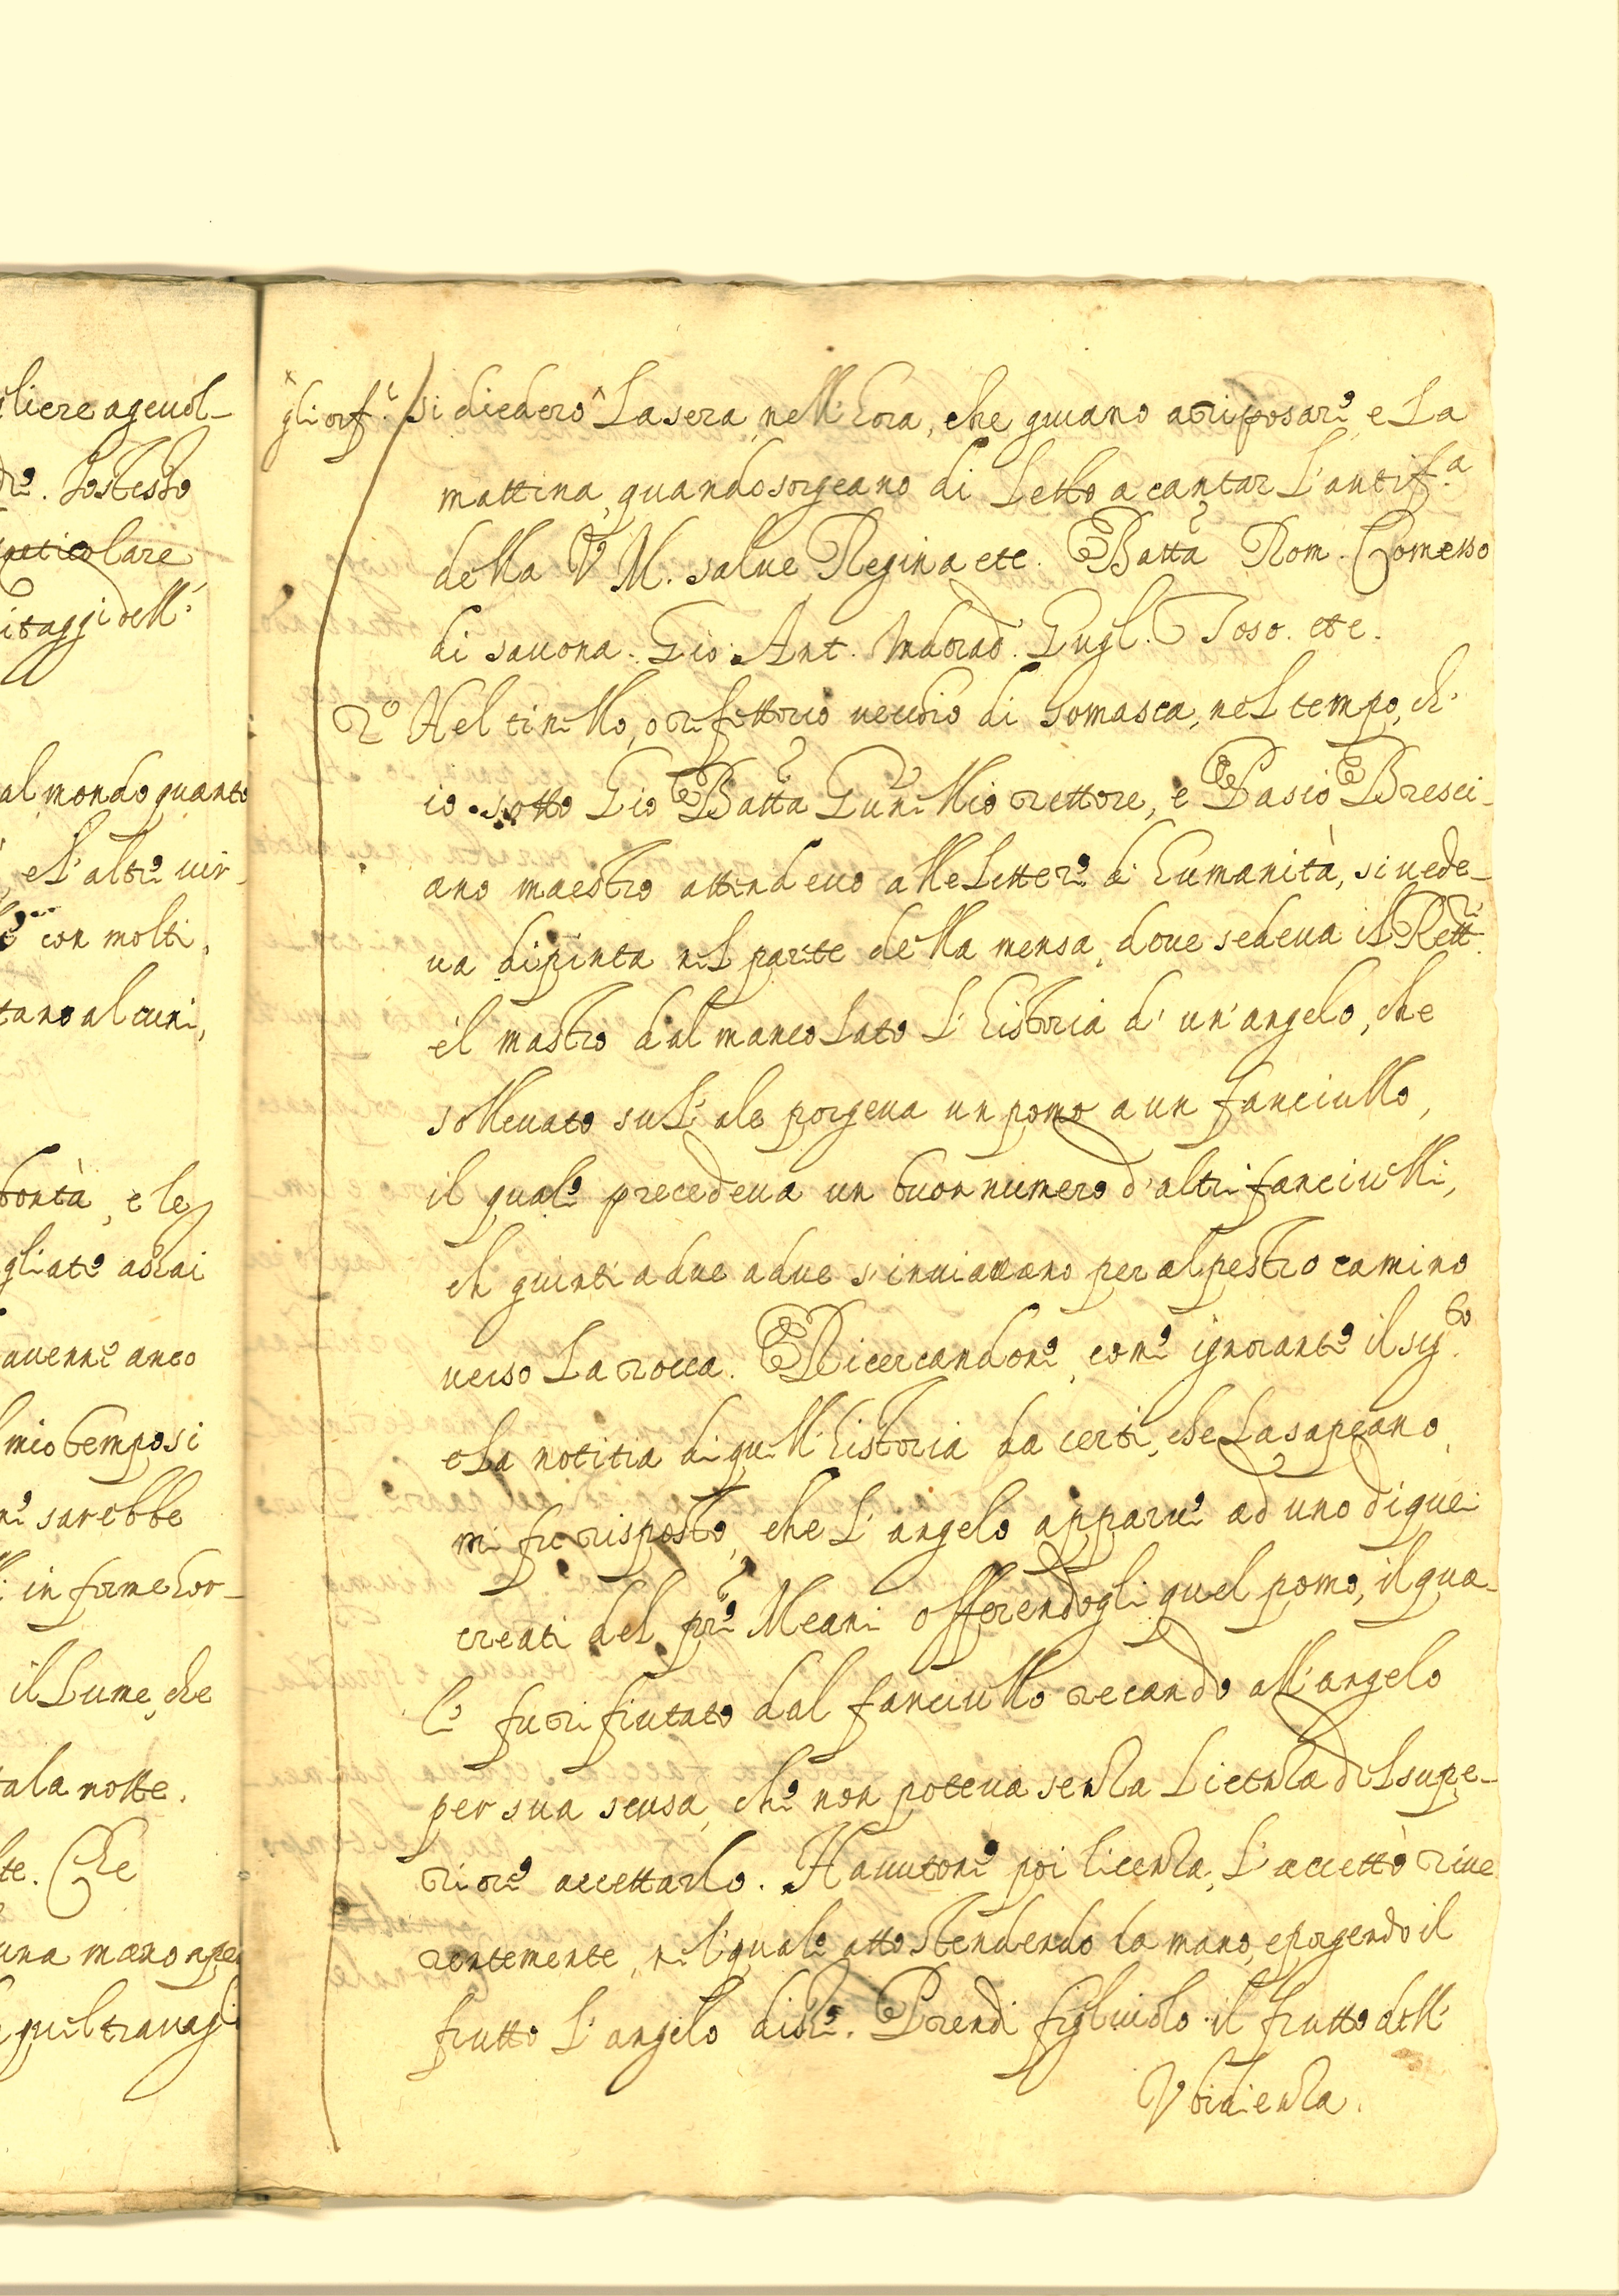 liere ageuol-
dre. Lo stesso
particolare
itaggi dell'
al mondo quanto
, e l'altre uir-
con molti,
tano alcuni,
bontà, e le
gliate assai
auenne anco
l mio tempo si
ne sarebbe
in forme hor-
il Lume, che
ta la notte.
te. Che
una mano ape
quel trauagli
gli orf.i si diedero La sera nell'hora, che giuano a riposare e La
mattina, quando sorgeano di Letto a cantar L'antif.a
della V. M. salue Regina etc. Batta Rom. Comesso
di sauona. Gio: Ant. Mdrad. Gugl. Toso. etc.
2o Nel tinello, o refettorio uecchio di Somasca, nel tempo, ch'
io sotto Gio Batta Guerillio rettore, e Basio Bresci-
ano maestro attendeuo alle Lettere di humanità, si uede-
ua dipinta nel parte della mensa, doue sedeua il Rett.re
e'l mastro dal manco Lato L'historia d'un'angelo, che
solleuato su L'ale porgeua un pomo a un fanciullo,
il quale precedeua un buon numero d'altri fanciulli,
ch giunti a due a due s'inuiauano per alpestro camino
uerso La rocca. Ricercandone, come ignorante il sig.to
e La notitia di quell'historia da certi, che La sapeano,
mi fu risposto, che L'angelo apparue ad uno di quei
creati del pre Meani offerendogli quel pomo, il qua-
le fu rifiutato dal fanciullo recando all'angelo
per sua scusa, che non poteua senza Licenza del supe-
riore accettarlo. Hauutone poi licenza, L'accettò riue
rentemente, nel quale atto stendendo la mano, e porgendo il
frutto L'angelo disse. Prendi figliuolo il frutto dell'
Vbidienza.